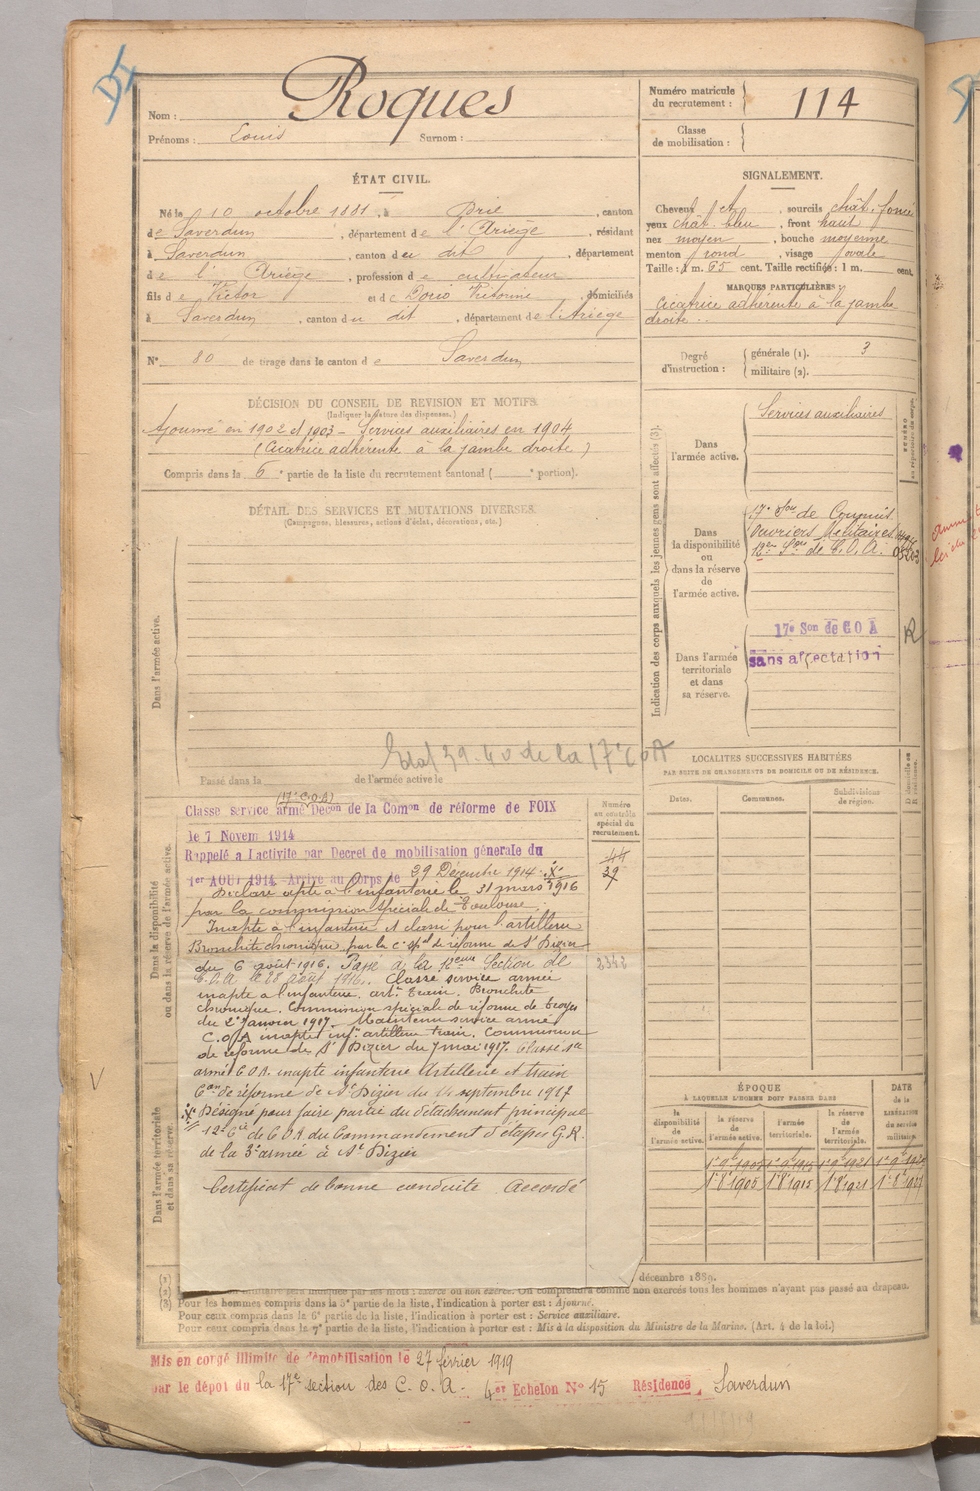 DI
Nom : Roques
Prénoms : Louis Surnom :
Numéro matricule du recrutement : 114
Classe de mobilisation :
ÉTAT CIVIL.
Né le 10 octobre 1881, à Brie, canton
de Saverdun, département de l'Ariège, résidant
à Saverdun, canton du dit, département
de l'Ariège, profession de cultivateur
fils de Victor et de Victorine, domiciliés
à Saverdun, canton du dit, département de l'Ariège
N° 80 de tirage dans le canton de Saverdun
SIGNALEMENT.
Cheveux et, sourcils chât. foncé
yeux chât. bleu, front haut
nez moyen, bouche moyenne
menton rond, visage ovale
Taille : 1 m. 65 cent. Taille rectifiée : 1 m. cent.
MARQUES PARTICULIÈRES :
Cicatrice adhérente à la jambe
droite
Degré d'instruction : générale (1). 3
militaire (2).
DÉCISION DU CONSEIL DE REVISION ET MOTIFS.
(Indiquer la nature des dispenses.)
Ajourné en 1902 et 1903 – Services auxiliaires en 1904
(Cicatrice adhérente à la jambe droite)
Compris dans la 6e partie de la liste du recrutement cantonal ( e portion).
DÉTAIL DES SERVICES ET MUTATIONS DIVERSES.
(Campagnes, blessures, actions d'éclat, décorations, etc.)
Dans l'armée active.
Indication des corps auxquels les jeunes gens sont affectés (3).
Dans l'armée active.
Services auxiliaires
Dans la disponibilité ou dans la réserve de l'armée active.
17e Son de Commis
Ouvriers Militaires
12e Son de C.O.A.
Dans l'armée territoriale et dans sa réserve.
17e Son de COA
sans affectation
R
Etat 39-40 de la 17e COA
Passé dans la de l'armée active le
LOCALITÉS SUCCESSIVES HABITÉES
PAR SUITE DE CHANGEMENTS DE DOMICILE OU DE RÉSIDENCE.
Dates. Communes. Subdivisions de région. D domicile ou R résidence.
Dans la disponibilité ou dans la réserve de l'armée active.
Numéro au contrôle spécial du recrutement.
44
39
2342
(17e C.O.A)
Classé service armé Décon de la Comon de réforme de FOIX
le 7 Novem 1914
Rappelé à l'activité par Décret de mobilisation générale du
1er AOUT 1914. Arrivé au corps le 29 Décembre 1914
Déclaré apte à l'infanterie le 31 mars 1916
par la commission spéciale de Toulouse.
Inapte à l'infanterie et classé pour l'artillerie
Bronchite chronique par la C. spéle de réforme de St Dizier
du 6 août 1916. Passé à la 12eme Section de
C.O.A. le 28 août 1916. Classé service armée
inapte à l'infanterie, art. Train. Bronchite
chronique. Commission spéciale de réforme de Troyes
du 2 Janvier 1917. Maintenu service armé
C.O.A inapte inf. artillerie train. Commission
de réforme de St Dizier du 7 mai 1917. Classé sce
armé C.O.A. inapte infanterie Artillerie et train
Con de réforme de St Dizier du 14 septembre 1917
Désigné pour faire partie du détachement principal
12e Cie de C.O.A. du Commandement d'étapes G.R.
de la 3e armée à St Dizier
Certificat de bonne conduite accordé
Dans l'armée territoriale et dans sa réserve.
ÉPOQUE
À LAQUELLE L'HOMME DOIT PASSER DANS
la disponibilité de l'armée active. la réserve de l'armée active. l'armée territoriale. la réserve de l'armée territoriale.
DATE de la LIBÉRATION du service militaire.
1er 9bre 1905 1er 9bre 1915 1er 9bre 1921
1er 8bre 1905 1er 8bre 1915 1er 8bre 1921
(1) décembre 1889.
(2)
(3) Pour les hommes compris dans la 5e partie de la liste, l'indication à porter est : Ajourné.
Pour ceux compris dans le 6e partie de la liste, l'indication à porter est : Service auxiliaire.
Pour ceux compris dans le 7e partie de la liste, l'indication à porter est : Mis à la disposition du Ministre de la Marine. (Art. 4 de la loi.)
Mis en congé illimité de démobilisation le 27 février 1919
par le dépôt du la 17e section des C.O.A. 4e Echelon N° 15 Résidence Saverdun